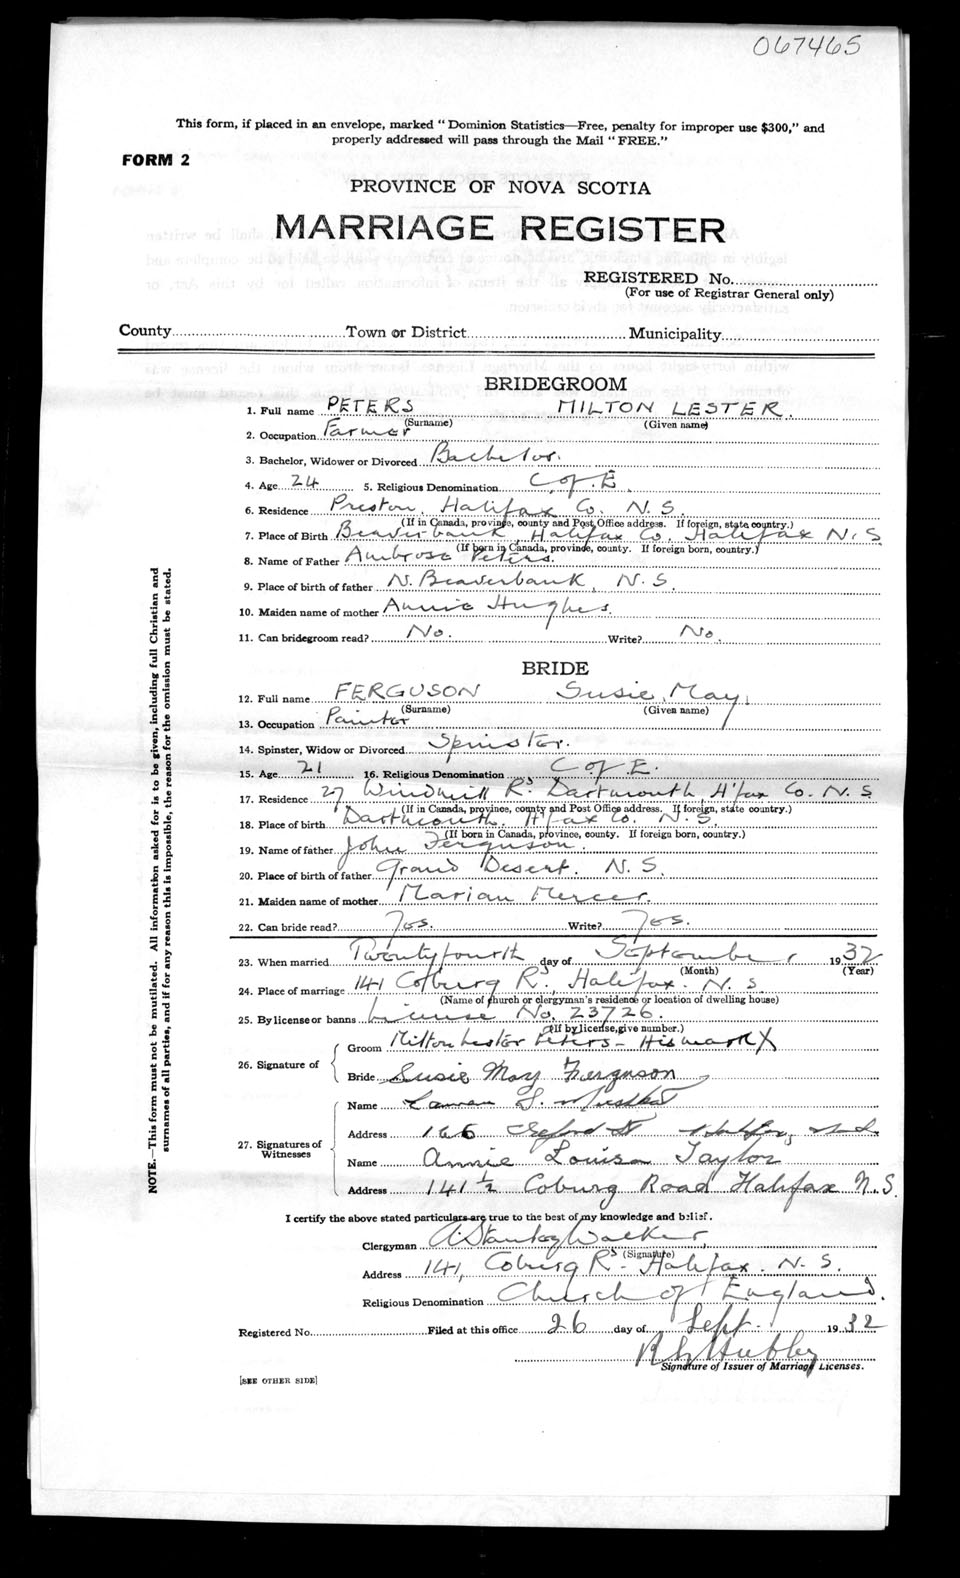 067465
This form, if placed in an envelope, marked "Dominion Statistics—Free, penalty for improper use $300," and
properly addressed will pass through the Mail "FREE."
FORM 2
PROVINCE OF NOVA SCOTIA
MARRIAGE REGISTER
REGISTERED No.
(For use of Registrar General only)
County Town or District Municipality
BRIDEGROOM
1. Full name PETERS MILTON LESTER.
(Surname) (Given name)
2. Occupation Farmer
3. Bachelor, Widower or Divorced Bachelor.
4. Age 24 5. Religious Denomination C. of. E.
6. Residence Preston, Halifax Co. N. S.
(If in Canada, province, county and Post Office address. If foreign, state country.)
7. Place of Birth Beaverbank, Halifax Co. Halifax N.S
(If born in Canada, province, county. If foreign born, country.)
8. Name of Father Ambrose Peters.
9. Place of birth of father N. Beaverbank, N. S.
10. Maiden name of mother Annie Hughes.
11. Can bridegroom read? No. Write? No.
BRIDE
12. Full name FERGUSON Susie May.
(Surname) (Given name)
13. Occupation Painter
14. Spinster, Widow or Divorced Spinster.
15. Age 21 16. Religious Denomination C of E.
17. Residence 27 Windmill Rd. Dartmouth H'fax Co. N. S
(If in Canada, province, county and Post Office address. If foreign, state country.)
18. Place of birth Dartmouth. H'fax Co. N. S.
(If born in Canada, province, county. If foreign born, country.)
19. Name of father John Ferguson.
20. Place of birth of father Grand Desert. N. S.
21. Maiden name of mother Marian Mercer.
22. Can bride read? Yes. Write? Yes.
23. When married Twentyfourth day of September, 1932
(Month) (Year)
24. Place of marriage 141 Coburg Rd, Halifax. N. S
(Name of church or clergyman's residence or location of dwelling house)
25. By license or banns License No. 23726.
(If by license, give number.)
26. Signature of
Groom Milton Lester Peters - His mark X
Bride Susie May Ferguson
27. Signatures of
Witnesses
Name
Address 166 Oxford St Halifax, N.S.
Name Annie Louisa Taylor
Address 141 1/2 Coburg Road Halifax N.S.
I certify the above stated particulars are true to the best of my knowledge and belief.
Clergyman A Stanley Walker,
(Signature)
Address 141, Coburg Rd - Halifax. N. S.
Religious Denomination Church of England.
Registered No. Filed at this office 26 day of Sept. 1932
Signature of Issuer of Marriage Licenses.
[SEE OTHER SIDE]
NOTE.—This form must not be mutilated. All information asked for is to be given, including full Christian and
surnames of all parties, and if for any reason this is impossible, the reason for the omission must be stated.